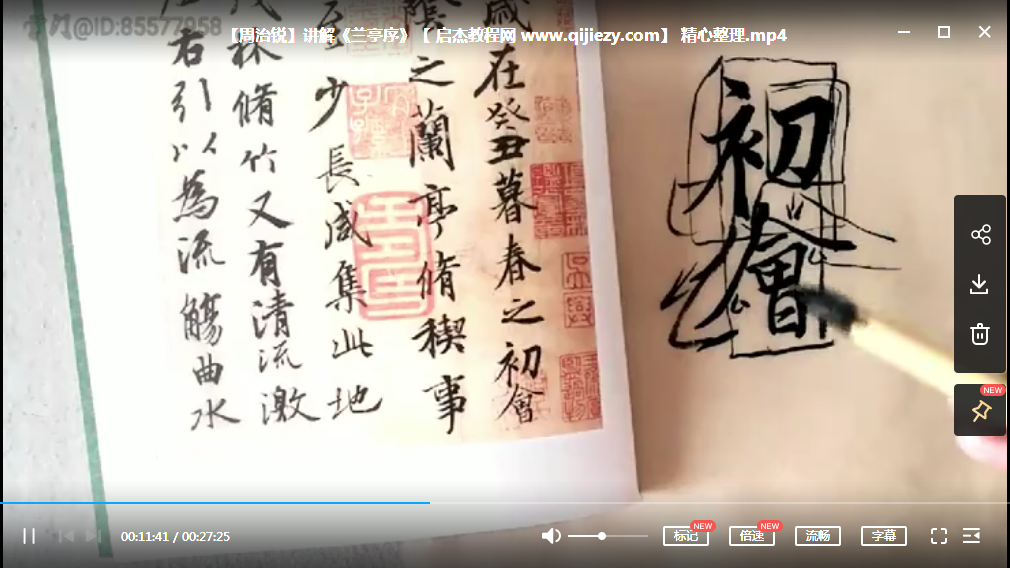 @ID:85577958
【周治锐】讲解《兰亭序》【 启杰教程网 www.qijiezy.com】 精心整理.mp4
初會
歲在癸丑暮春之初會
陰之蘭亭脩稧事
少長咸集此地
林脩竹又有清流激
右引以為流觴曲水
NEW
00:11:41 / 00:27:25
标记 NEW
倍速 NEW
流畅
字幕